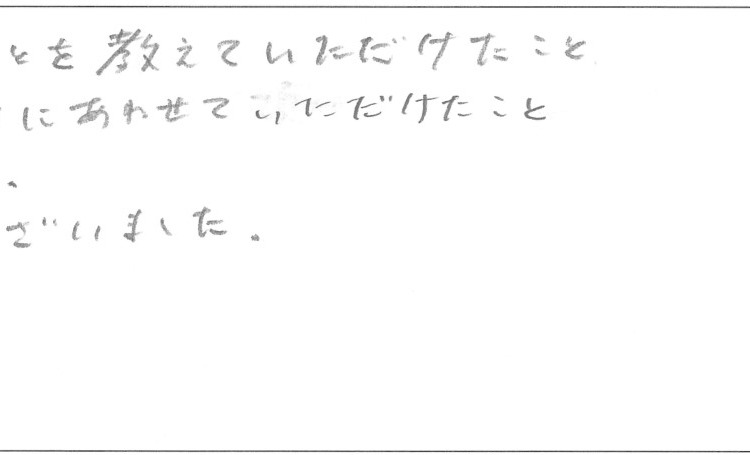 とを教えていただけたこと
にあわせていただけたこと
、
ざいました。